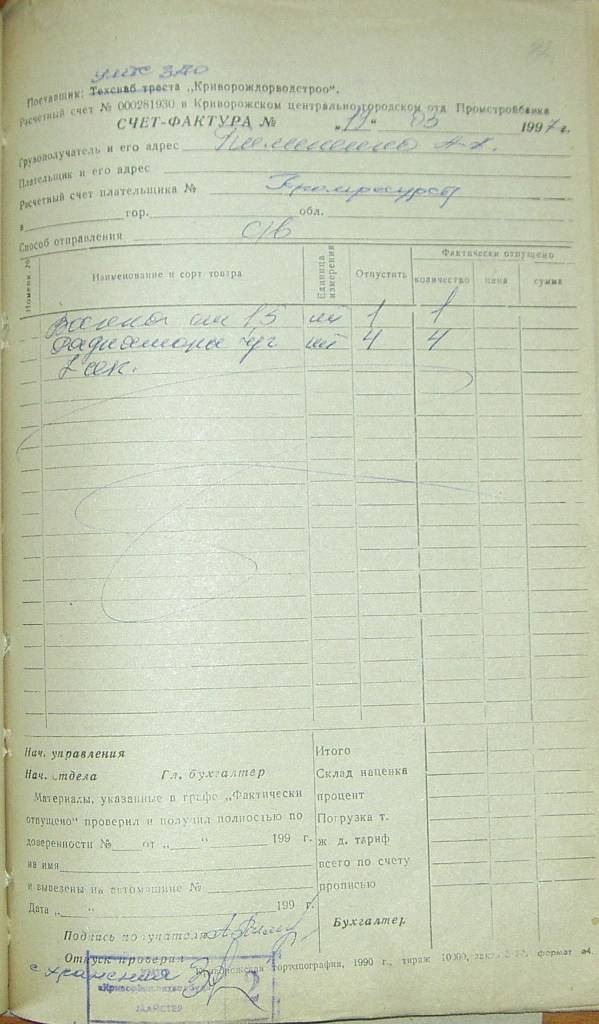 92
УМТС ЗАО
Поставщик: Техснаб треста „Криворождорводстрой".
Расчетный счет № 000281930 в Криворожском центрально-городском отд Промстройбанка
СЧЕТ-ФАКТУРА № „19" 03 1997 г.
Грузополучатель и его адрес Пилипенко А.
Плательщик и его адрес
Расчетный счет плательщика № Промресурсы
в гор. обл.
Способ отправления с/в
Номенк. № Наименование и сорт товара Единица измерения Отпустить Фактически отпущено
количество цена сумма
Ванны 1,5 шт 1 1
Радиаторы чуг шт 4 4
7 сек.
Нач. управления Итого
Нач. отдела Гл. бухгалтер Склад наценка
Материалы, указанные в графе „Фактически процент
отпущено" проверил и получил полностью по Погрузка т.
доверенности № от „ " 199 г. ж д. тариф
на имя всего по счету
и вывезены на автомашине № прописью
Дата „ " 199 г.
Бухгалтер
Подпись получателя
Отпуск проверил
Криворожская гортипография, 1990 г., тираж 10000, формат а4.
с хранения
МАСТЕР